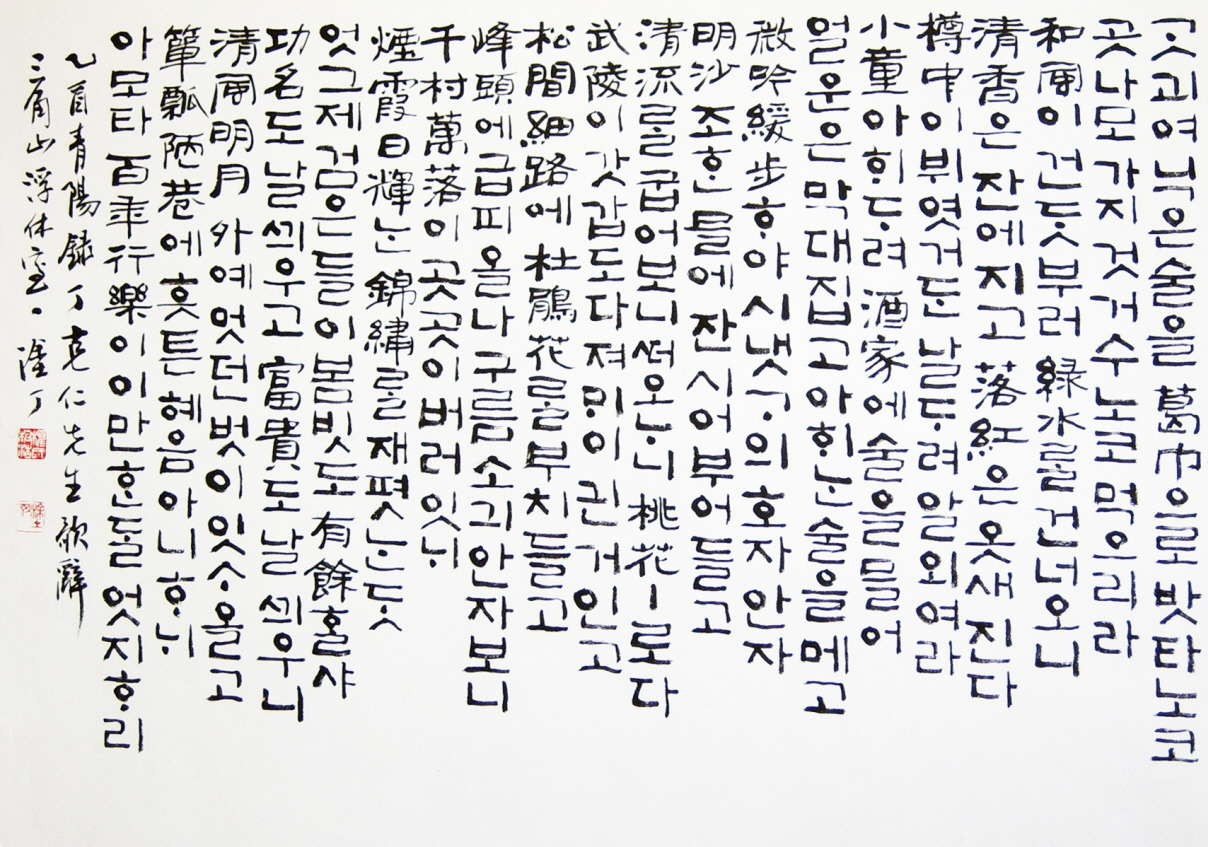 ᄀᆞᆺ괴여닉은술을 葛巾으로밧타노코
곳나모가지것거수노코먹으리라
和風이건ᄃᆞᆺ부러 綠水ᄅᆞᆯ건너오니
清香은잔에지고 落紅은옷새진다
樽中이뷔엿거ᄃᆞᆫ날ᄃᆞ려알외여라
小童아ᄒᆡᄃᆞ려 酒家에술을믈어
얼운은막대집고아ᄒᆡᄂᆞᆫ술을메고
微吟緩步ᄒᆞ야시냇ᄀᆞ의호자안자
明沙조ᄒᆞᆫ믈에잔시어부어들고
清流ᄅᆞᆯ굽어보니ᄯᅥ오ᄂᆞ니桃花ㅣ로다
武陵이갓갑도다져ᄆᆡ이긘거인고
松間細路에杜鵑花ᄅᆞᆯ부치들고
峰頭에급피올나구름소긔안자보니
千村萬落이곳곳이버러잇ᄂᆡ
煙霞日輝ᄂᆞᆫ 錦繡ᄅᆞᆯ재폇ᄂᆞᆫᄃᆞᆺ
엇그제검은들이봄빗도有餘ᄒᆞᆯ샤
功名도날ᄭᅴ우고 富貴도날ᄭᅴ우니
清風明月外예엇던벗이잇ᄉᆞ올고
簞瓢陋巷에흣튼혜음아니ᄒᆞᄂᆡ
아모타 百年行樂이이만ᄒᆞᆫᄃᆞᆯ엇지ᄒᆞ리
乙酉青陽錄丁克仁先生歌辭
三角山浮休室